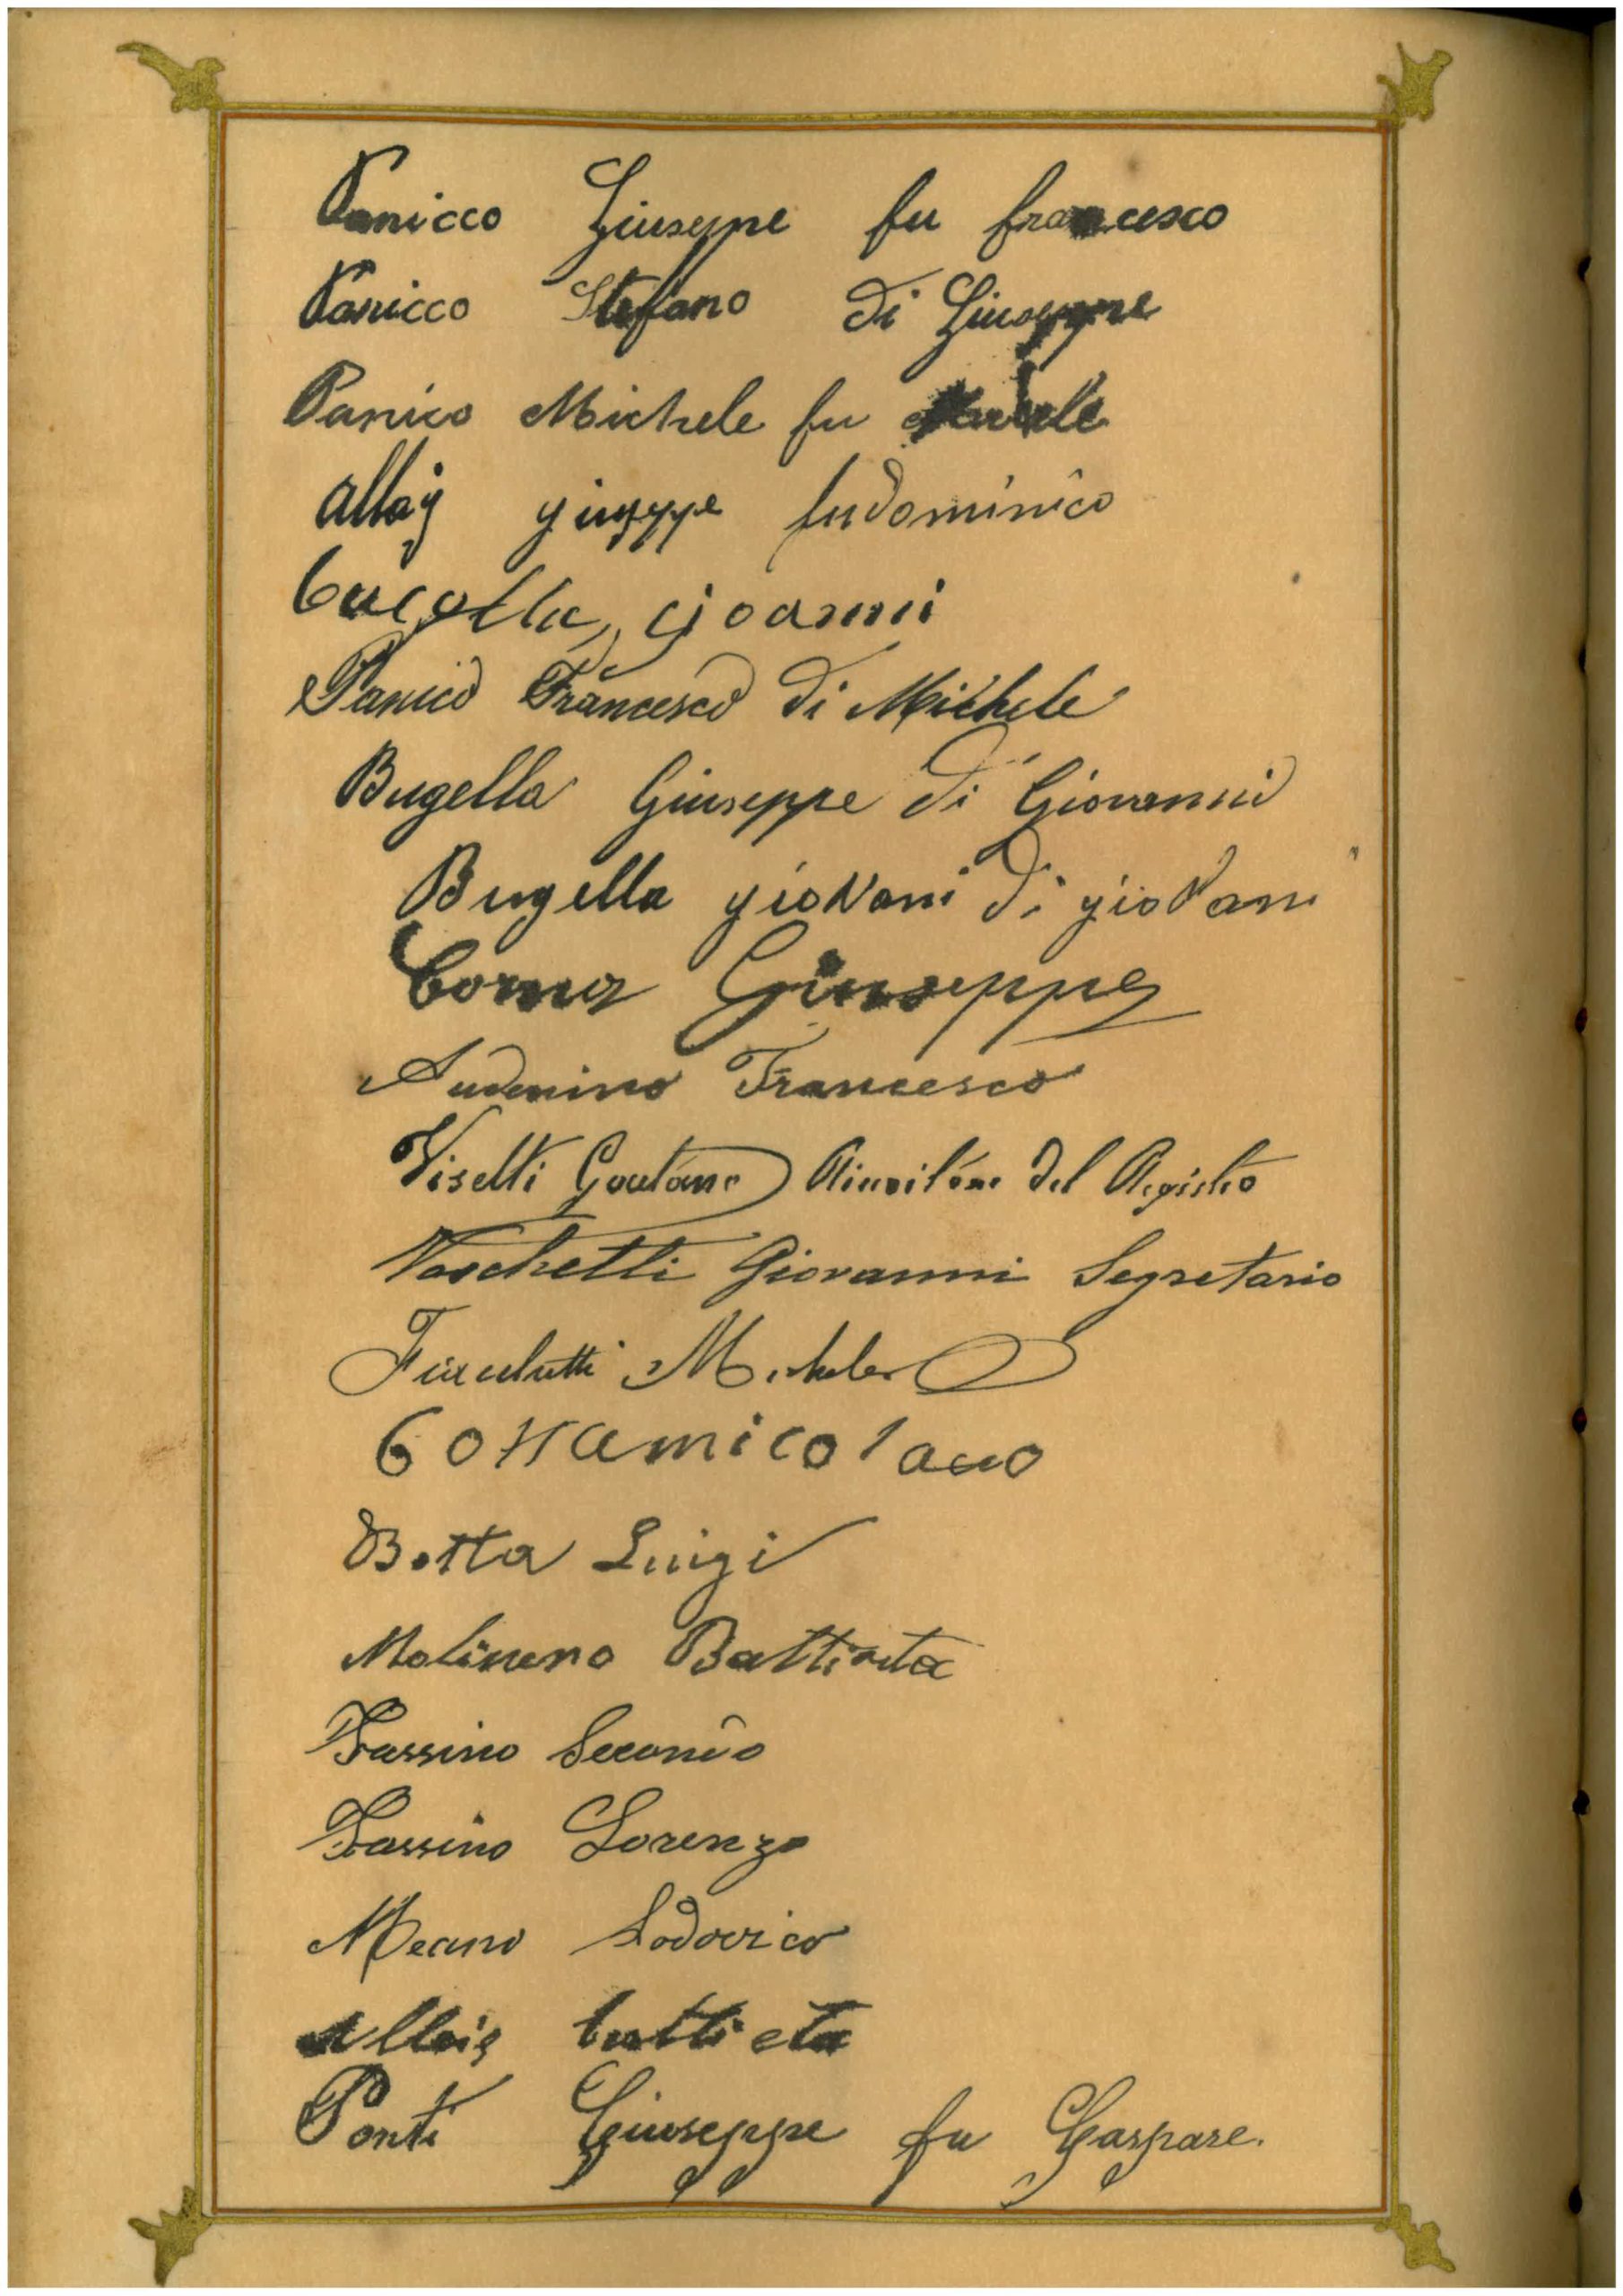 Panicco Giuseppe fu francesco
Panicco Stefano di Giuseppe
Panico Michele fu
Allaj giuseppe fu dominico
gioanni
Panico Francesco di Michele
Bugella Giuseppe di Giovanni
Bugella gioVani di gioVani
Comer Giuseppe
Audenino Francesco
Viselli Gaetano Ricevitore del Registro
Vaschetti Giovanni Segretario
Michele

Botta Luigi
Molinero Battista
Fassino Secondo
Fassino Lorenzo
Meano Lodovico
battista
Ponti Giuseppe fu Gaspare.